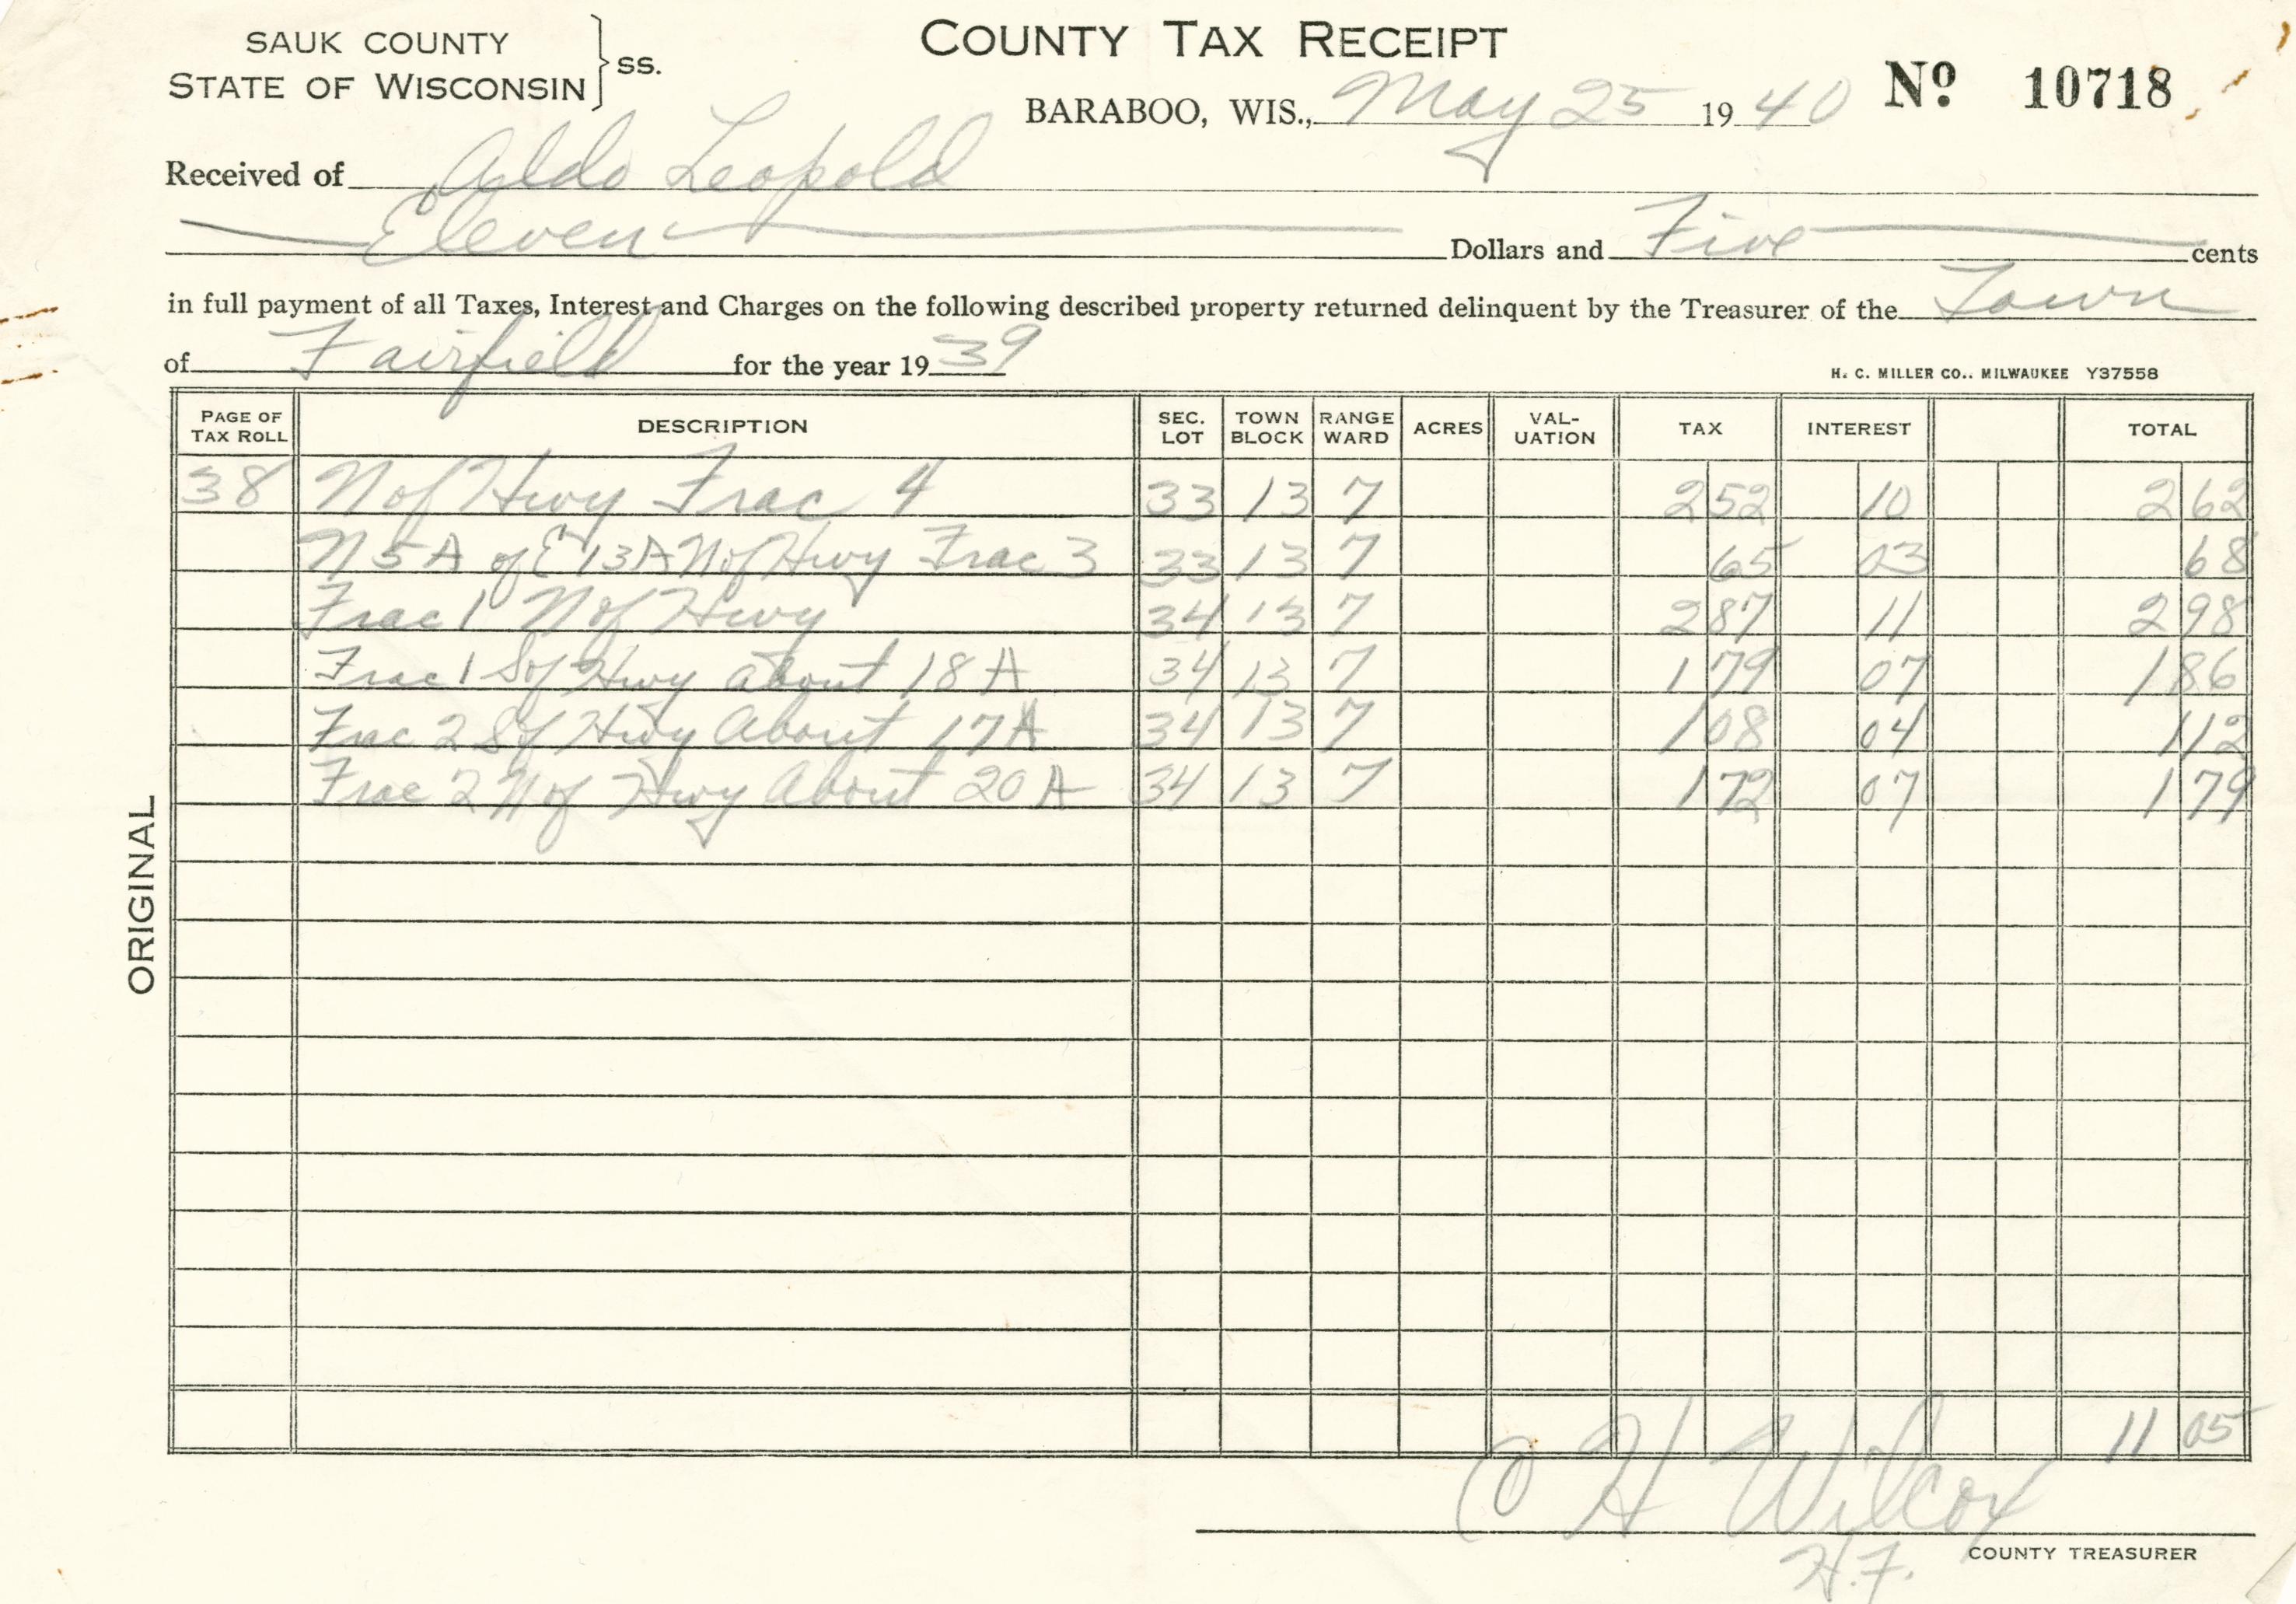 SAUK COUNTY
STATE OF WISCONSIN } SS.
COUNTY TAX RECEIPT
BARABOO, WIS., May 25 19 40 Nº 10718
Received of Aldo Leopold
Eleven Dollars and Five cents
in full payment of all Taxes, Interest and Charges on the following described property returned delinquent by the Treasurer of the Town
of Fairfield for the year 19 39
H. C. MILLER CO., MILWAUKEE Y37558
PAGE OF TAX ROLL DESCRIPTION SEC. LOT TOWN BLOCK RANGE WARD ACRES VAL-UATION TAX INTEREST TOTAL
38 N of Hwy Frac 4 33 13 7 2 52 10 2 62
N 5 A of E 13 A N of Hwy Frac 3 33 13 7 65 03 68
Frac 1 N of Hwy 34 13 7 2 87 11 2 98
Frac 1 S of Hwy about 18 A 34 13 7 1 79 07 1 86
Frac 2 S of Hwy About 17 A 34 13 7 1 08 04 1 12
Frac 2 N of Hwy About 20 A 34 13 7 1 72 07 1 79
ORIGINAL
11 05
C H Wilcox
COUNTY TREASURER
H.F.